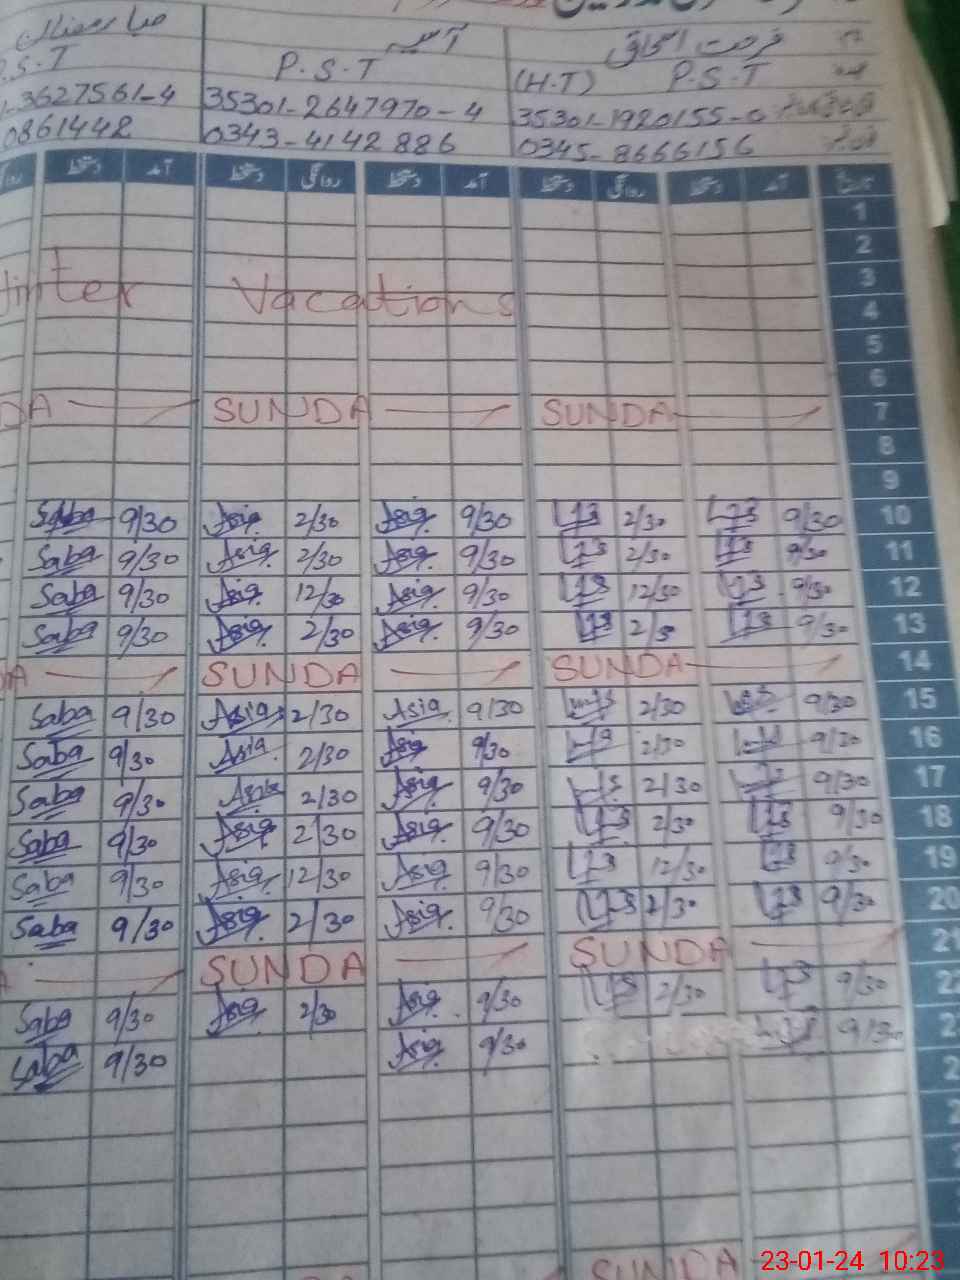 صبا رمضان آسیہ فرحت اسحاق نام
P.S.T P.S.T (H.T) P.S.T عہدہ
3627561-4 35301-2647970-4 35301-1920155-0
0861442 0343-4142886 0345-8666156
دستخط آمد دستخط روانگی دستخط آمد دستخط روانگی دستخط آمد تاریخ
1
2
Winter Vacations 3
4
5
6
DA SUNDA SUNDA 7
8
9
Saba 9/30 Asia 2/30 Asia 9/30 2/30 9/30 10
Saba 9/30 Asia 2/30 Asia 9/30 2/30 9/30 11
Saba 9/30 Asia 12/30 Asia 9/30 12/30 9/30 12
Saba 9/30 Asia 2/30 Asia 9/30 9/30 13
DA SUNDA SUNDA 14
Saba 9/30 Asia 2/30 Asia 9/30 2/30 9/30 15
Saba 9/30 Asia 2/30 Asia 9/30 2/30 9/30 16
Saba 9/30 Asia 2/30 Asia 9/30 2/30 9/30 17
Saba 9/30 Asia 2/30 Asia 9/30 2/30 9/30 18
Saba 9/30 Asia 12/30 Asia 9/30 12/30 9/30 19
Saba 9/30 Asia 2/30 Asia 9/30 2/30 9/30 20
SUNDA SUNDA 21
Saba 9/30 Asia 2/30 Asia 9/30 2/30 9/30
Saba 9/30 Asia 9/30 9/30
SUNDA
23-01-24 10:23